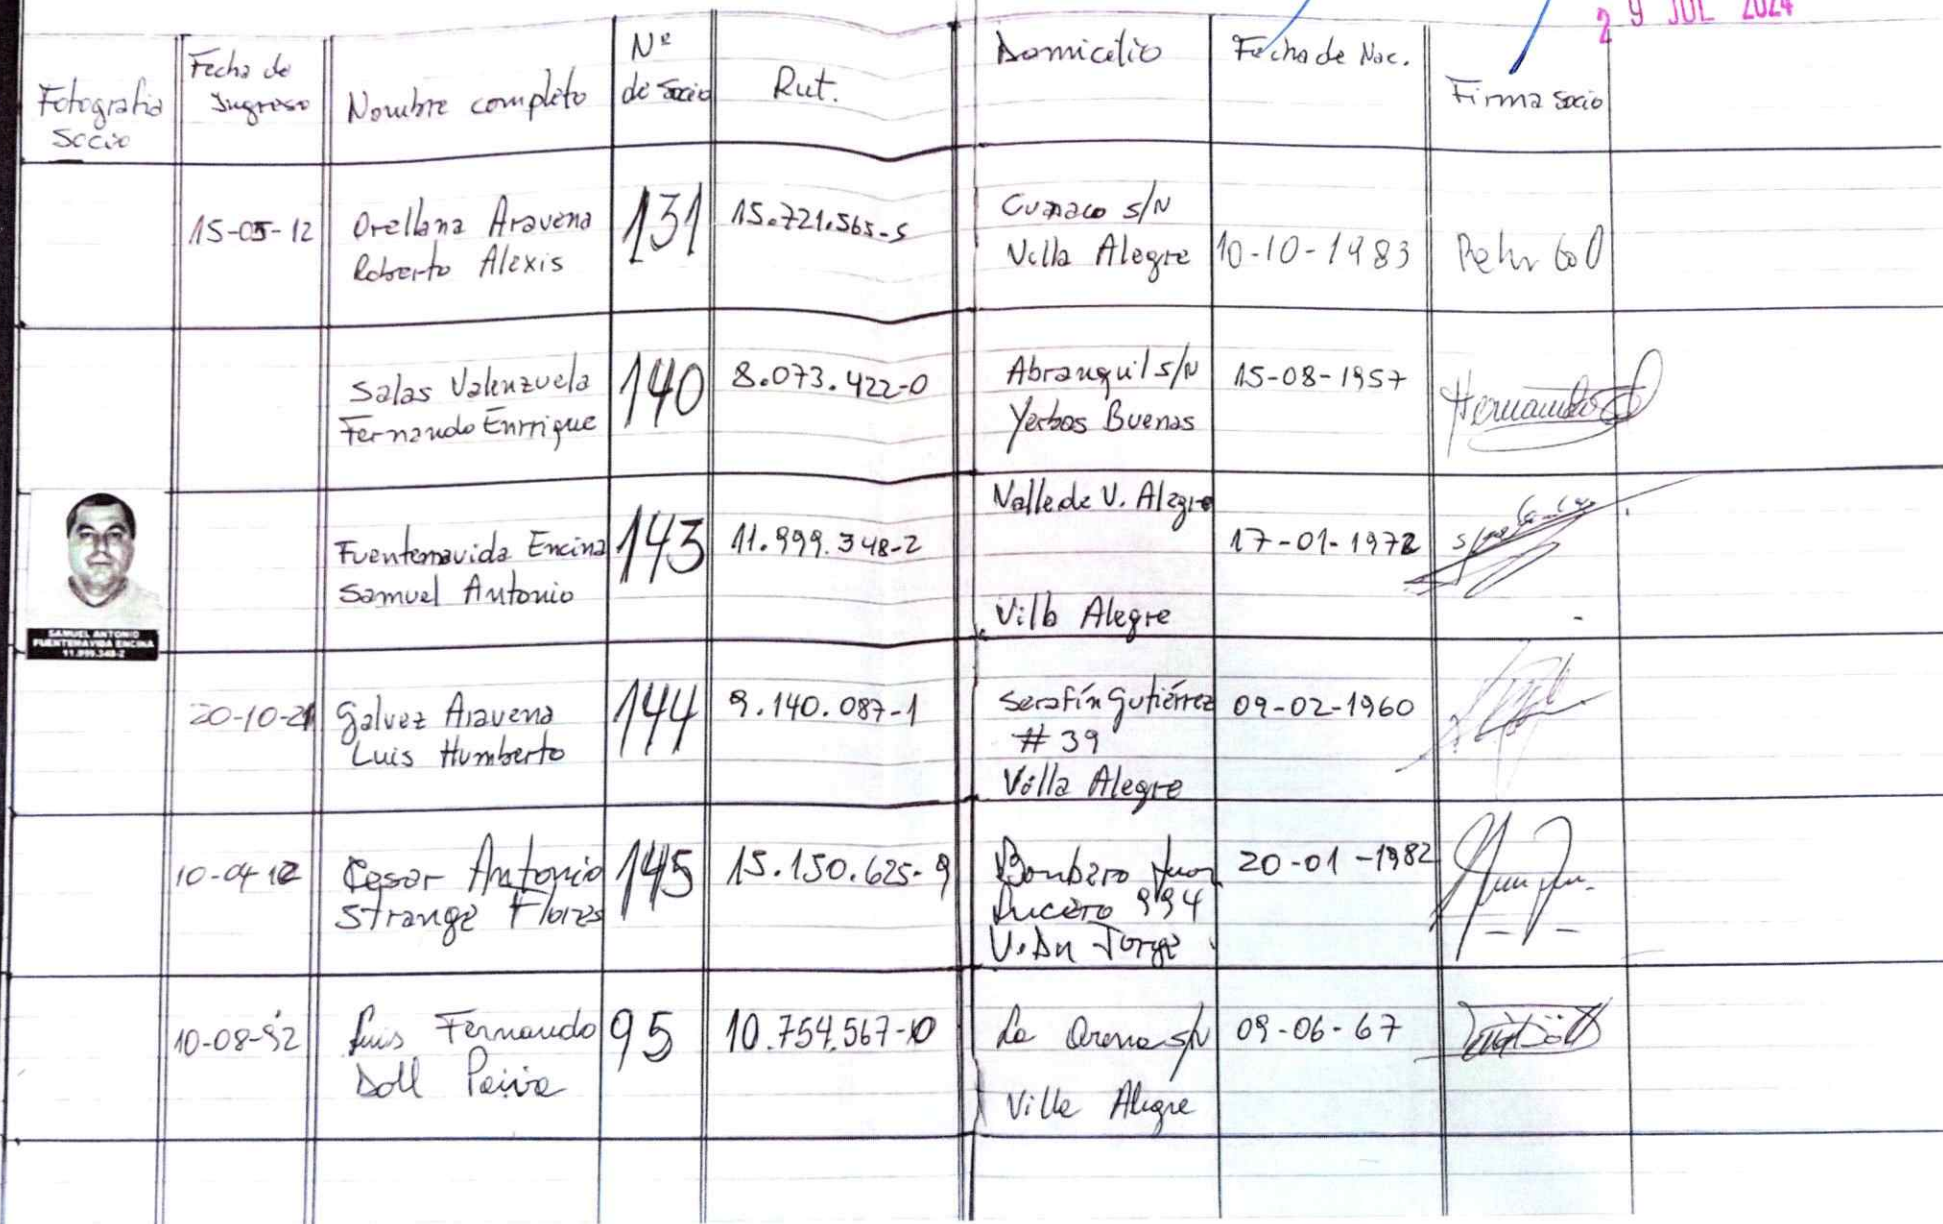 29 JUL 2024
Fotografia Socio
Fecha de Ingreso
Nombre completo
Nº de Socio
Rut.
Domicilio
Fecha de Nac.
Firma socio
15-05-12
Orellana Aravena
Roberto Alexis
131
15.721.565-5
Cunaco s/N
Villa Alegre
10-10-1983
Salas Valenzuela
Fernando Enrrique
140
8.073.422-0
Abranquil s/N
Yerbas Buenas
15-08-1957
SAMUEL ANTONIO
FUENTENAVIDA ENCINA
11.999.348-2
Fuentenavida Encina
Samuel Antonio
143
11.999.348-2
Valle de V. Alegre
Villa Alegre
17-01-1972
20-10-21
Galvez Aravena
Luis Humberto
144
9.140.087-1
Serafín Gutiérrez
# 39
Villa Alegre
09-02-1960
10-04-12
Cesar Antonio
Strange Flores
145
15.150.625-9
Bombero Juan
Lucero 994
Jorge
20-01-1982
10-08-92
Luis Fernando
Doll
95
10.754.567-
La Arena s/N
Villa Alegre
09-06-67